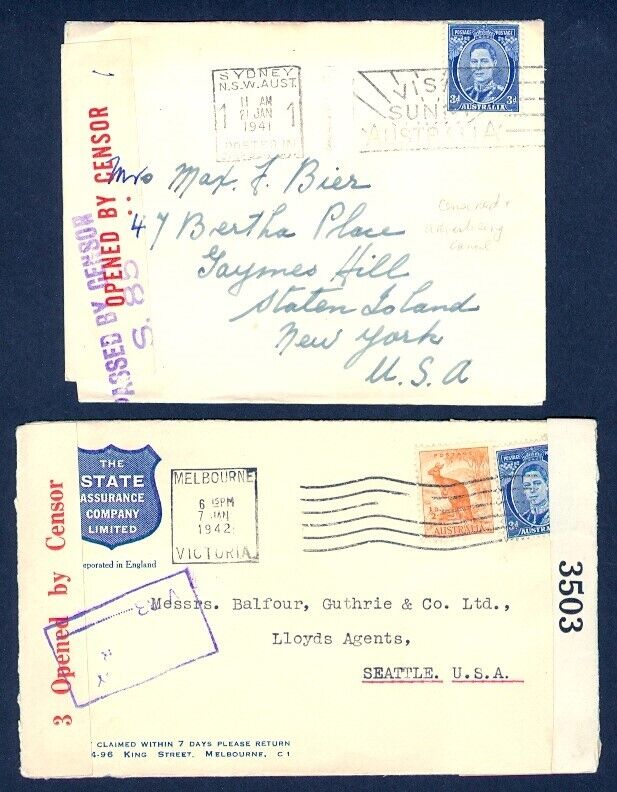 SYDNEY
N.S.W. AUST.
11 AM
1 21 JAN 1
1941
POSTED IN
VISIT
SUNNY
AUSTRALIA
POSTAGE POSTAGE
3d 3d
AUSTRALIA
OPENED BY CENSOR
PASSED BY CENSOR
S. 85
Mrs Max. F. Bier
47 Bertha Place
Gaymes Hill
Staten Island
New York
U.S.A
Censored &
advertising
cancel
THE
STATE
ASSURANCE
COMPANY
LIMITED
orporated in England
MELBOURNE
6 15PM
7 JAN
1942
VICTORIA
POSTAGE
AUSTRALIA
POSTAGE
3d
AUSTRA
3 Opened by Censor
3503
Messrs. Balfour, Guthrie & Co. Ltd.,
Lloyds Agents,
SEATTLE. U.S.A.
CLAIMED WITHIN 7 DAYS PLEASE RETURN
4-96 KING STREET, MELBOURNE, C1